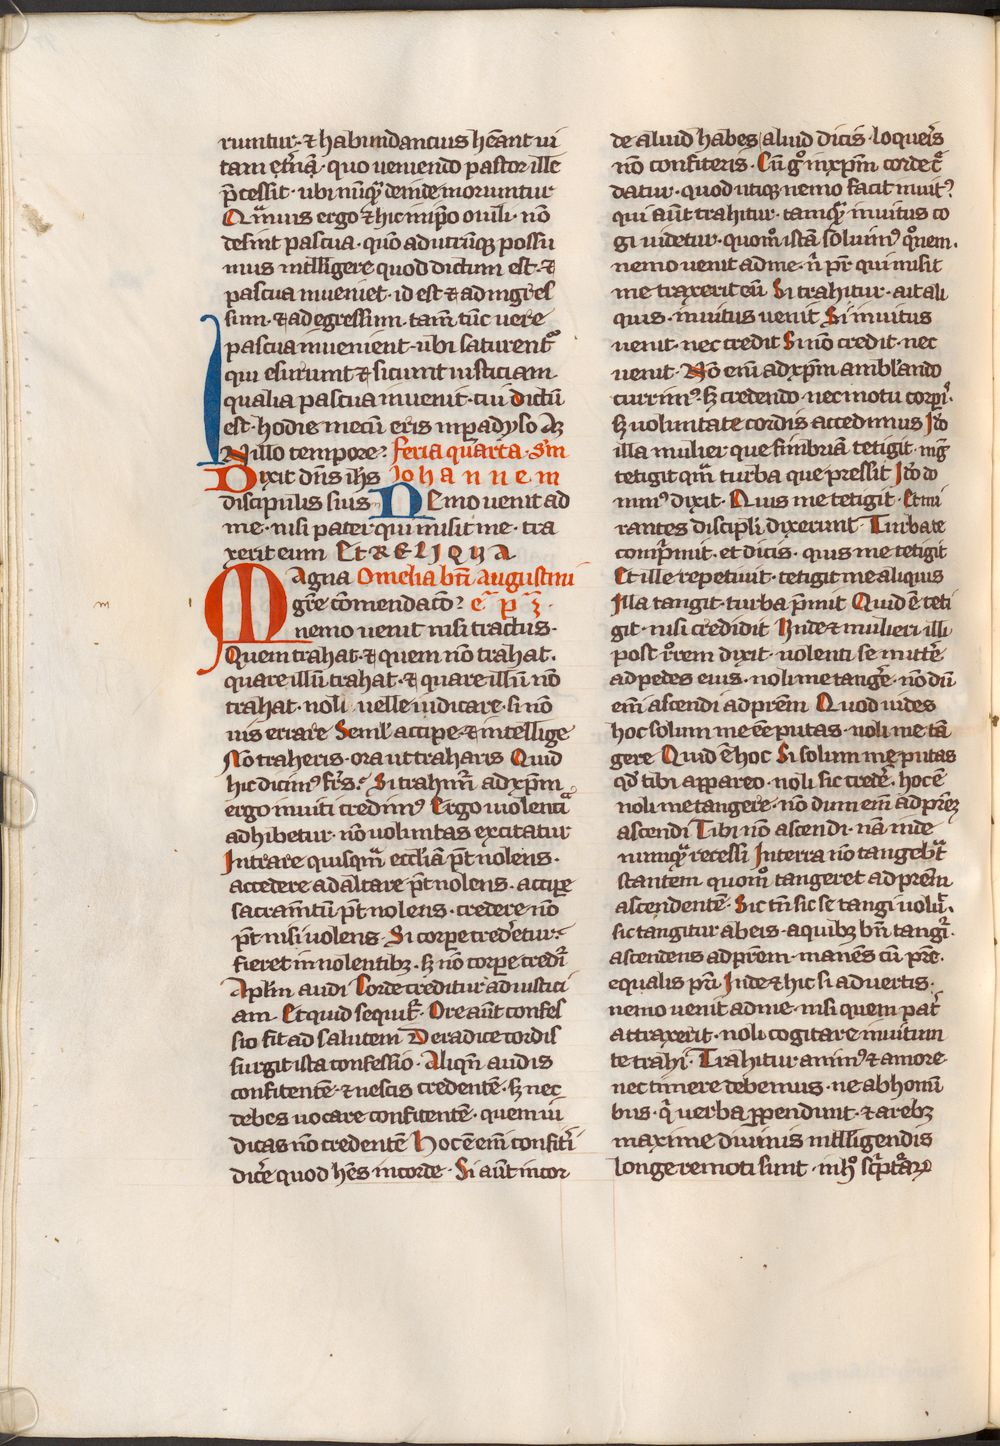 runtur · ⁊ habundancius hēant ui
tam et̄nā · quo ueniendo pastor ille
p̄cessit · ubi nūq̄ deinde moriuntur
Qͣmuis ergo ⁊ hic in ip̄o ouili · nō
desint pascua · quō ad utrūqꝫ possu
mus intelligere quod dictum est · ⁊
pascua inueniet · id est ⁊ ad ingres
sum · ⁊ ad egressum · tam̄ tūc uere
pascua inuenient · ubi saturentᷣ
qui esuriunt ⁊ siciunt iusticiam ·
qualia pascua inuenit · cui dictū
est · hodie mecū eris in padyso
IN illo tempore : feria quarta · s̄m
Dixit dn̄s ihs Johannem
discipulis suis · Nemo uenit ad
me · nisi pater qui misit me · tra
xerit eum Et RELIQUA
Magna Omelia bn̄i augustini
gr̄e cōmendacō :
nemo uenit nisi tractus ·
Quem trahat · ⁊ quem nō trahat ·
quare illū trahat · ⁊ quare illū nō
trahat · noli uelle iudicare · si nō
uis errare Semel accipe · ⁊ intellige
Nō traheris · ora ut traharis Quid
hic dicimꝰ fr̄s · Si trahimᷣ ad xp̄m
ergo inuiti credimꝰ Ergo uiolentiā
adhibetur · nō uoluntas excitatur
Intrare quisqͣm eccl̄iam p̄t nolens ·
accedere ad altare p̄t nolens · accipe
sacram̄tū p̄t nolens · credere nō
p̄t nisi uolens · Si corpe cred̄etur ·
fieret in nolentibꝫ · sꝫ nō corpe credit᷑
Ap̄lm audi Corde creditur ad iustici
am · Et quid sequit᷑ · Ore aūt confes
sio fit ad salutem De radice cordis
surgit ista confessio · Aliqn̄ audis
confitentē · ⁊ nescis credentē · sꝫ nec
debes uocare confitentē · quem iu
dicas nō credentē Hoc ē em̄ confit̄i
dic̄e quod hēs in corde · Si aūt in cor
de aliud habes aliud dicis · loqueris
nō confiteris · Cū gͦ in xp̄m corde c̄
datur · quod utiqꝫ nemo facit inuitꝰ
qui aūt trahitur · tamqͣ inuitus co
gi uidetur · quomͦ istā soluimꝰ qōnem ·
nemo uenit ad me · n̄ pr̄ qui misit
me traxerit eū Si trahitur · ait ali
quis · inuitus uenit Si inuitus
uenit · nec credit Si nō credit · nec
uenit · Nō em̄ ad xp̄m amblando
currimꝰ · sꝫ credendo · nec motu corpis ·
sꝫ uoluntate cordis accedimus Iō
illa mulier que fimbriā tetigit · mgͣ
tetigit qͣm turba que pressit Iō do
minꝰ dixit · Quis me tetigit · Et mi
rantes discipli dixerunt · Turba te
comp̄mit · et dicis · quis me tetigit
Et ille repetiuit · tetigit me aliquis
Illa tangit · turba p̄mit Quid ē teti
git · nisi credidit Inde ⁊ mulieri illi
post r̄rem dixit · uolenti se mitt̄e
ad pedes eius · noli me tanḡe · nō dū
em̄ ascendi ad prēm Quod uides
hoc solum me ēē putas · noli me tā
gere Quid ē hoc Si solum me putas
qd̄ tibi appareo · noli sic cred̄e · hoc ē
noli me tangere · nō dum em̄ ad prēꝫ
ascendi Tibi nō ascendi · nā inde
numqͣ recessi In terra nō tangebat
stantem quomͦ tangeret ad prēm
ascendentē · Sic tn̄ sic se tangi uoluit ·
sic tangitur ab eis · a quibꝫ bn̄ tangit᷑ ·
ascendens ad prēm · manēs cū prē ·
equalis prī Inde ⁊ hic si aduertis ·
nemo uenit ad me · nisi quem pat̄
attraxerit · noli cogitare inuitum
te trahi · Trahitur animꝰ ⁊ amore
nec timere debemus · ne ab homi
bus · q̇ uerba ppendunt · ⁊ a rebꝫ
maxime diuinis intelligendis
longe remoti sunt · in hͦ sc̄ptarꝝ